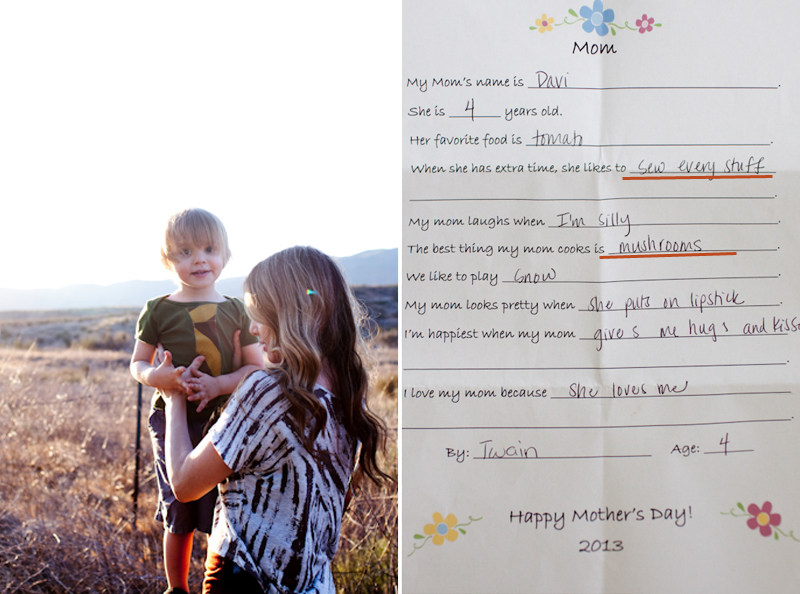 Mom
My Mom's name is Davi.
She is 4 years old.
Her favorite food is tomato.
When she has extra time, she likes to sew every stuff
.
My mom laughs when I'm silly.
The best thing my mom cooks is mushrooms.
We like to play snow.
My mom looks pretty when she puts on lipstick.
I'm happiest when my mom gives me hugs and kisse
.
I love my mom because she loves me
.
By: Twain Age: 4
Happy Mother's Day!
2013